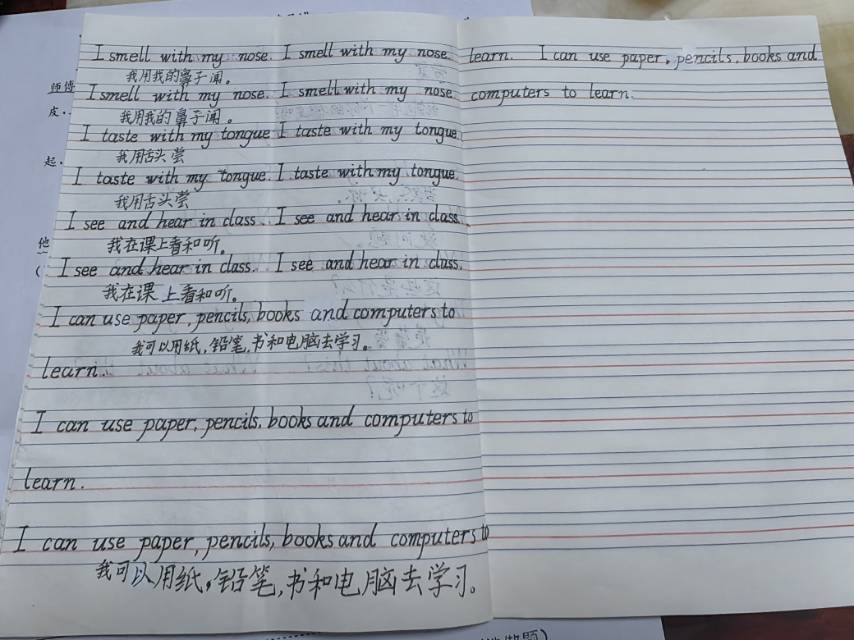 I smell with my nose. I smell with my nose.
我用我的鼻子闻。
I smell with my nose. I smell with my nose
我用我的鼻子闻。
I taste with my tongue I taste with my tongue
我用舌头尝
I taste with my tongue. I taste with my tongue.
我用舌头尝
I see and hear in class. I see and hear in class.
我在课上看和听。
I see and hear in class. I see and hear in class.
我在课上看和听。
I can use paper, pencils, books and computers to
我可以用纸,铅笔,书和电脑去学习。
learn.
I can use paper, pencils, books and computers to
learn.
I can use paper, pencils, books and computers to
我可以用纸,铅笔,书和电脑去学习。
learn. I can use paper, pencils, books and
computers to learn.
师傅
皮
起.
他